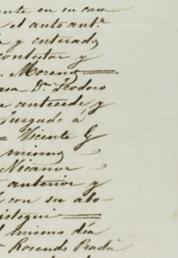 ente en su cau
el auto antr
e y enterado
contestar y
Moreno
Dn. Teodoro
e antecede y
juzgado á
Vicente G
mismo
Nicanor
anterior y
con su abo
istegui
l mismo dia
Rosendo Prada